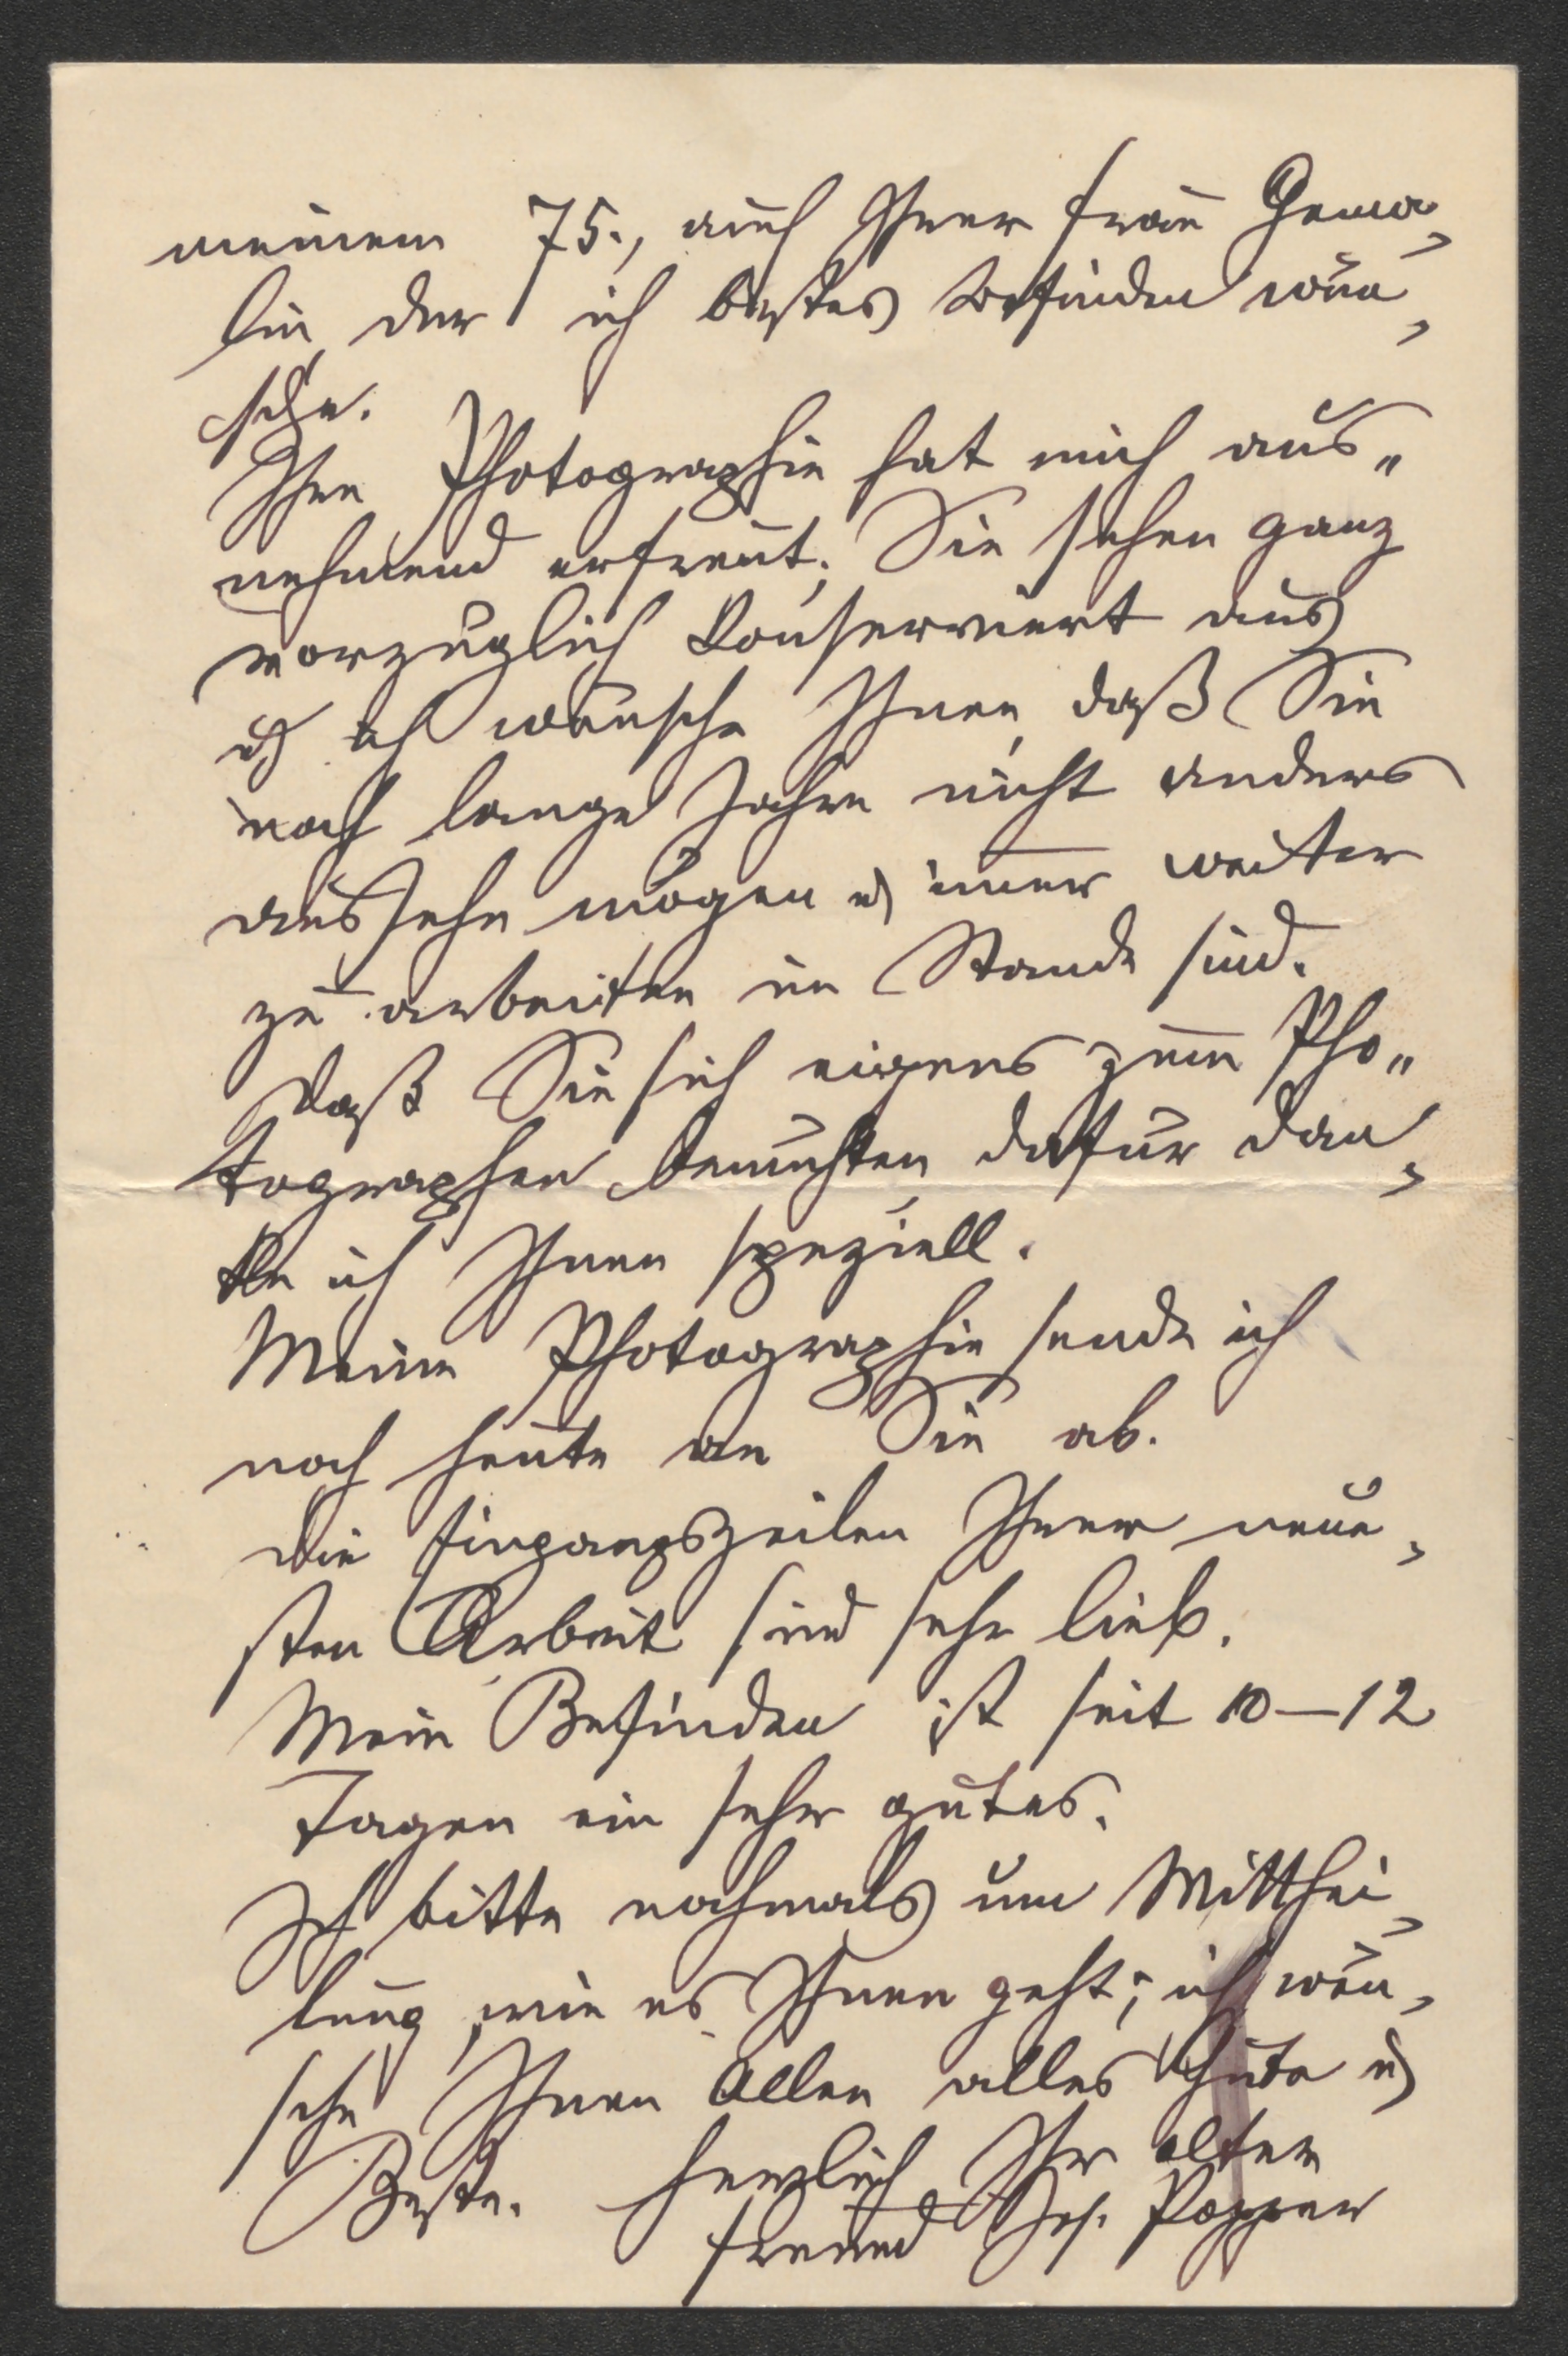 meinem 75., auch Ihrer Frau Gema-
lin der ich bestes Befinden wün-
sche.
Ihre Photographie hat mich aus-
nehmend erfreut; Sie sehen ganz
vorzüglich konserviert aus
u ich wünsche Ihnen, daß Sie
noch lange Jahre nicht anders
aussehn mögen u im̅er weiter
zu arbeiten im Stande sind.
Daß Sie sich eigens zum Pho-
tographen bemühten, dafür dan-
ke ich Ihnen speziell.
Meine Photographie sende ich
noch heute an Sie ab.
Die Eingangszeilen Ihrer neue-
sten Arbeit sind sehr lieb.
Mein Befinden ist seit 10–12
Tagen ein sehr gutes.
Ich bitte nochmals um Mitthei-
lung, wie es Ihnen geht; ich wün-
sche Ihnen Allen alles Gute u
Beste. Herzlich Ihr alter
Freund Jos. Popper